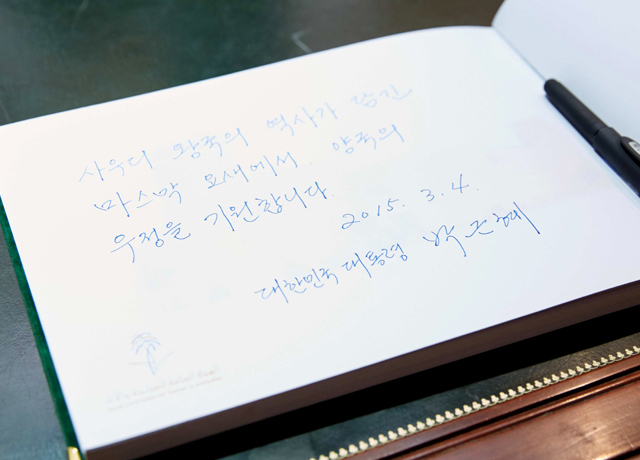 사우디 왕족의 역사가 담긴
마스막 요새에서. 양국의
우정을 기원합니다.
2015. 3. 4.
대한민국 대통령 박근혜